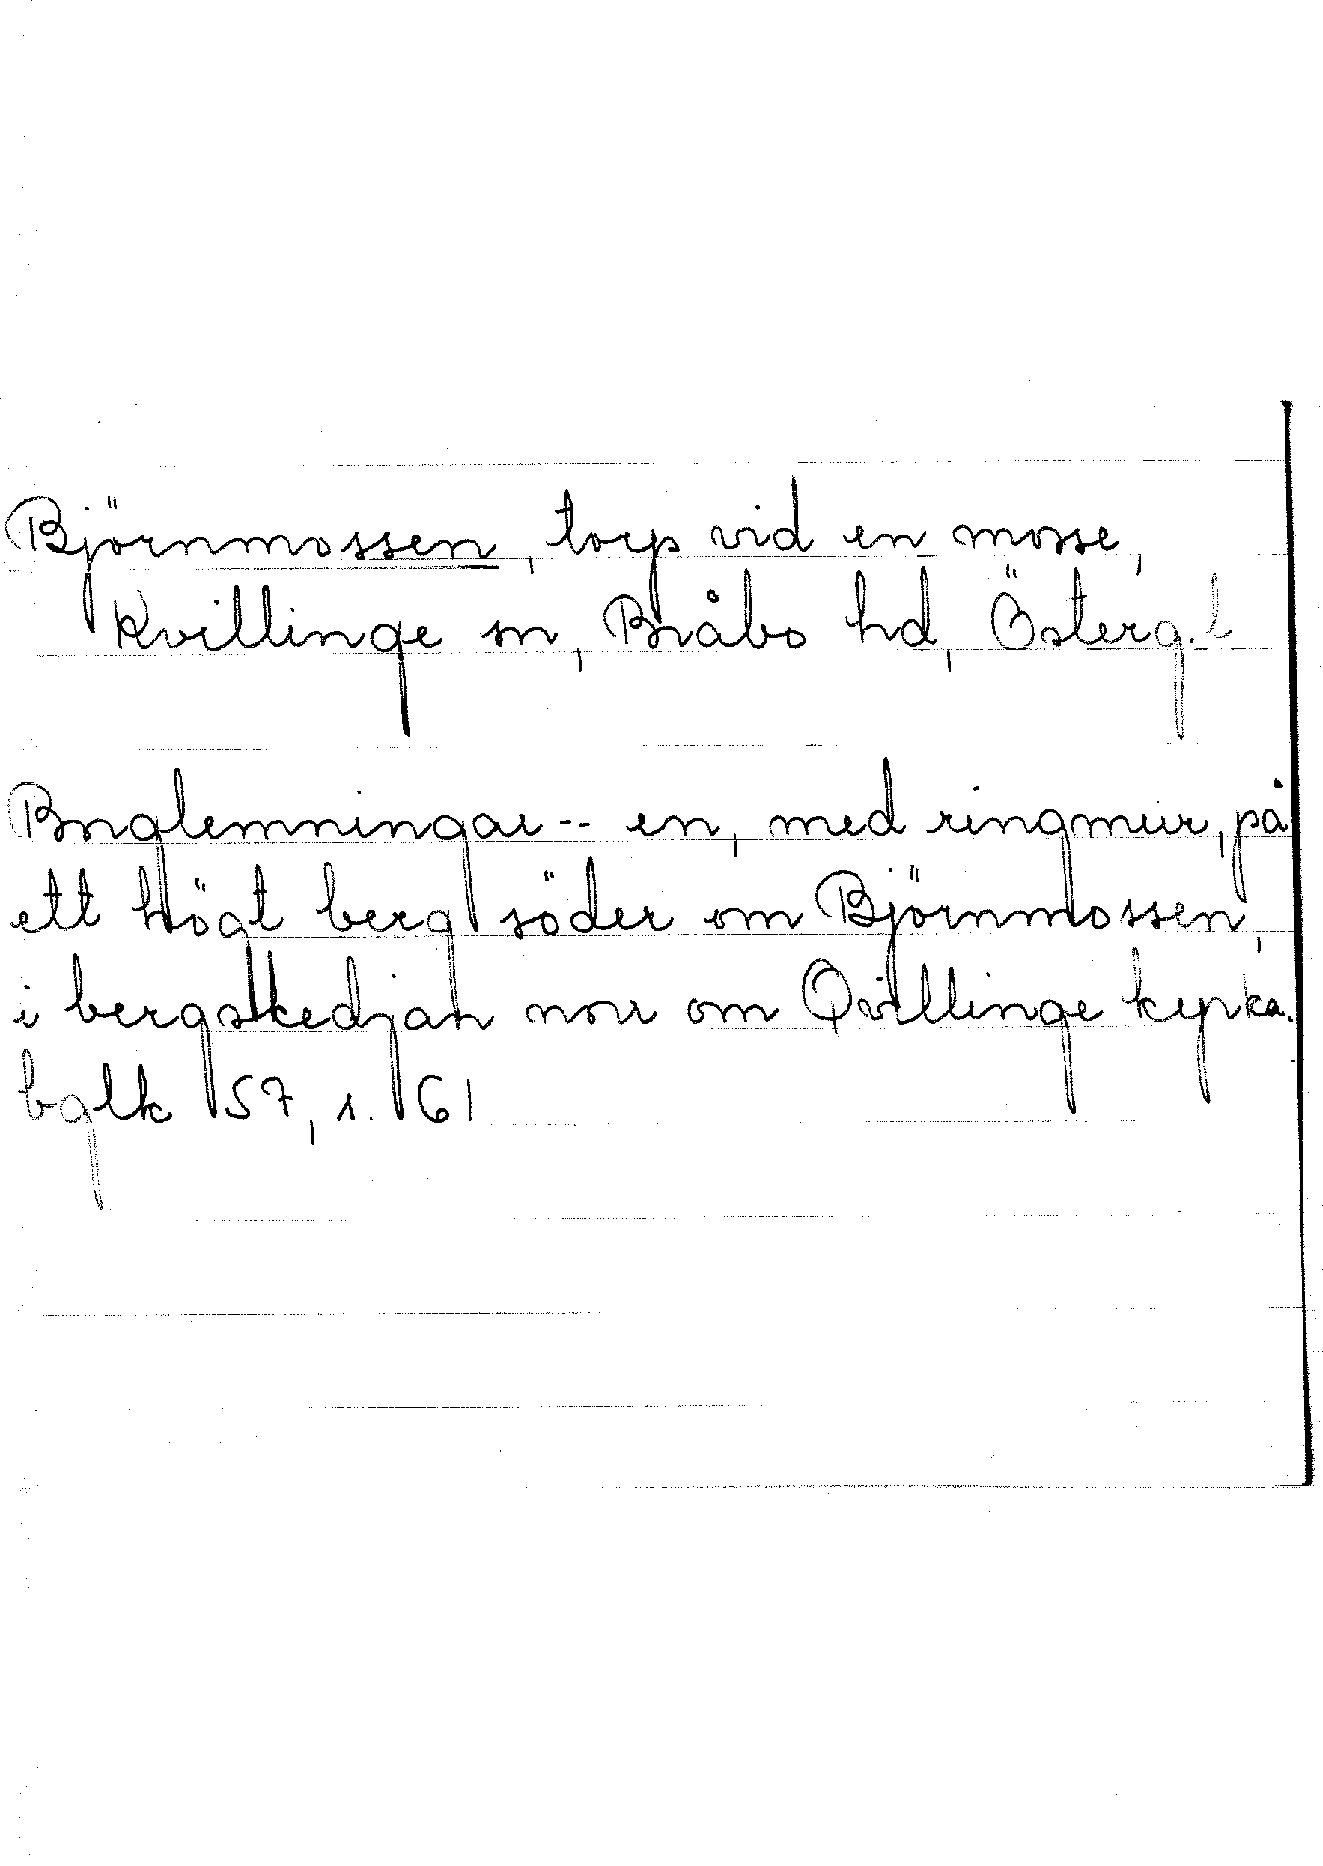 Björnmossen, torp vid en mosse,
Kvillinge sn, Bråbo hd, Österg. l
Borglemningar -- en, med ringmur, på
ett högt berg söder om Björnmossen,
i bergskedjan norr om Qvillinge kyrka.
bglk 57, s. 61